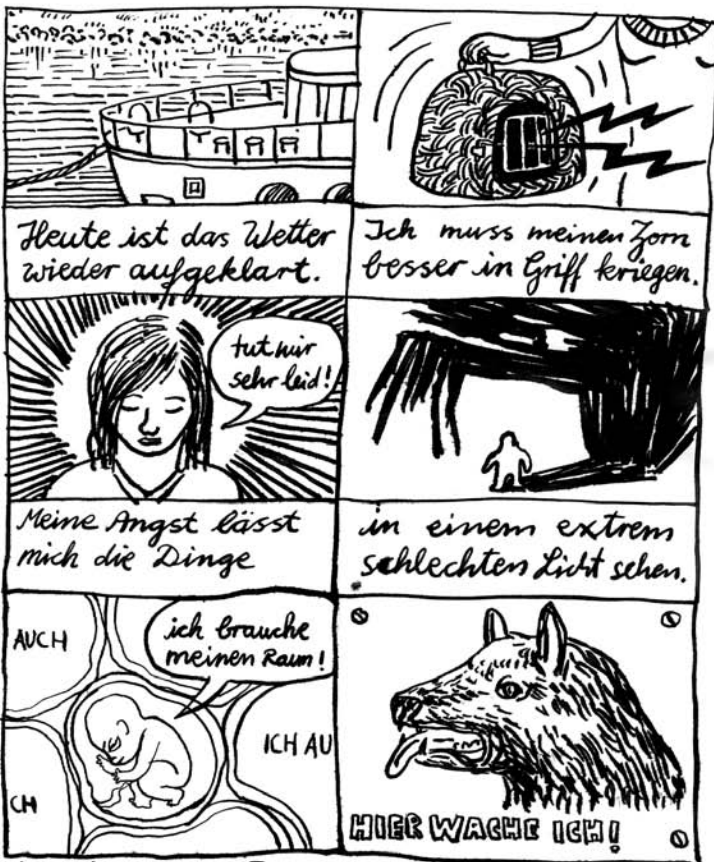 Heute ist das Wetter
wieder aufgeklart.
Ich muss meinen Zorn
besser in Griff kriegen.
tut mir
sehr leid!
Meine Angst lässt
mich die Dinge
in einem extrem
schlechten Licht sehen.
AUCH
ich brauche
meinen Raum!
ICH AU
CH
HIER WACHE ICH!